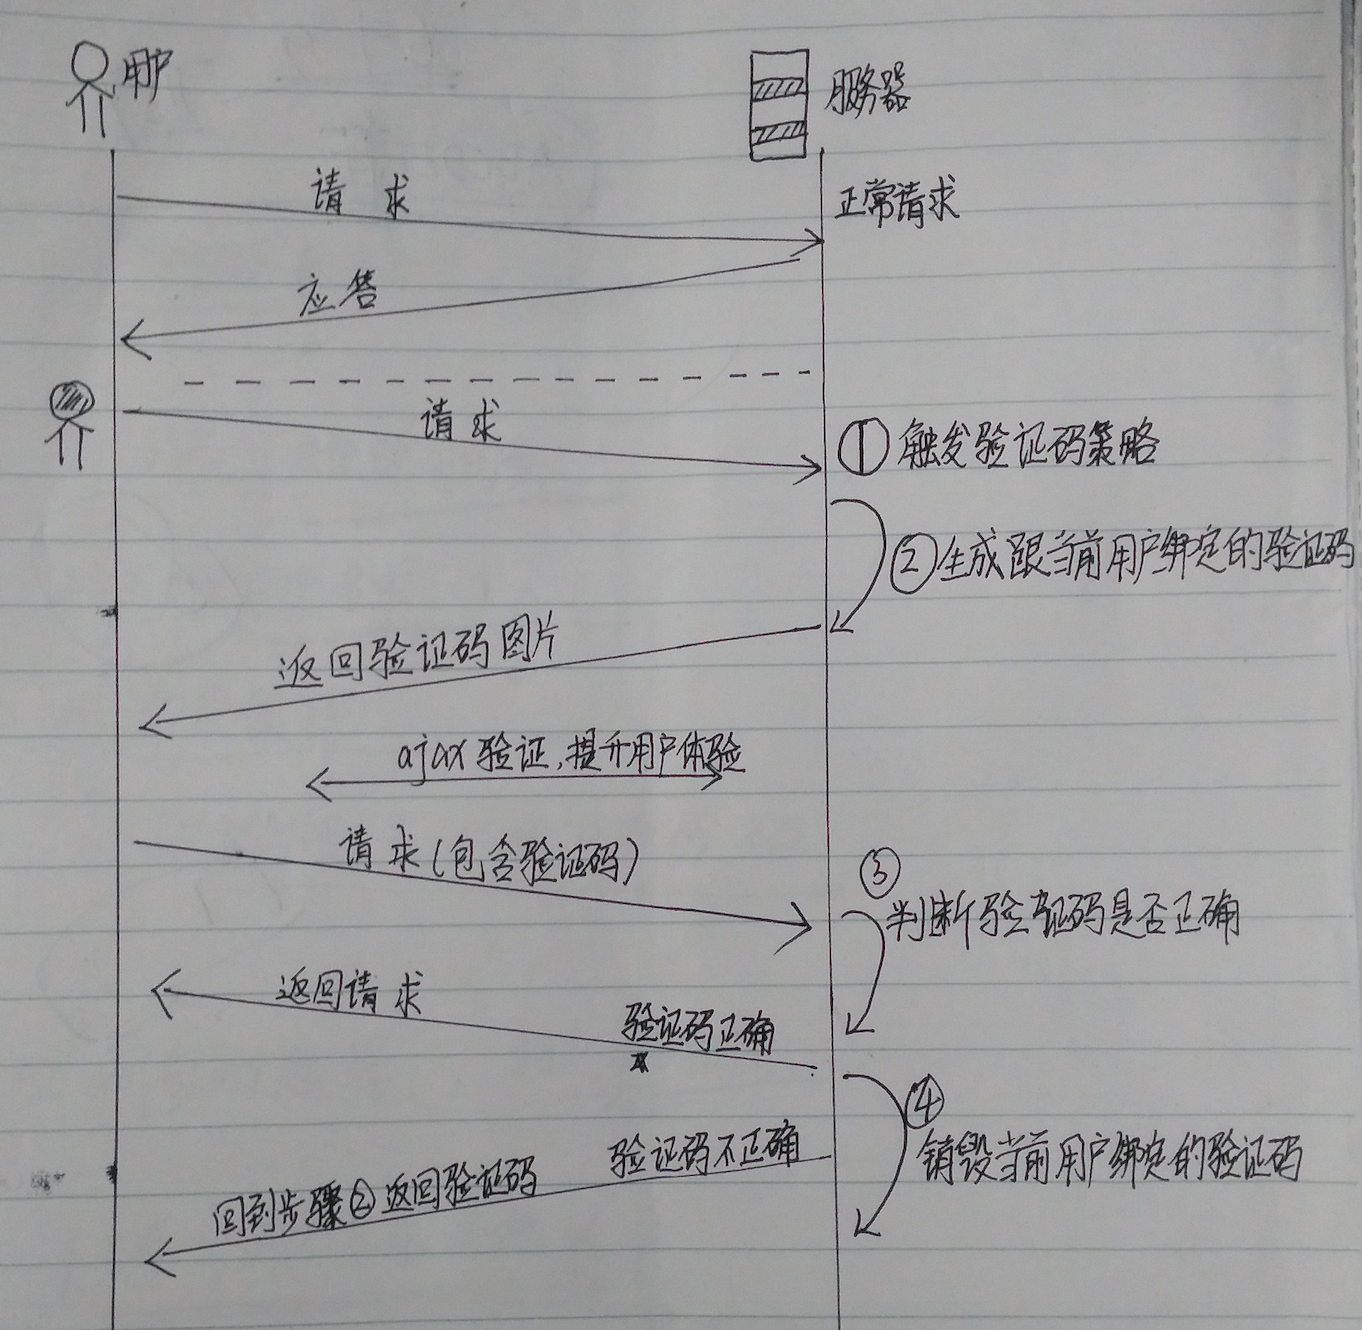 用户
服务器
请求
正常请求
应答
请求
① 触发验证码策略
② 生成跟当前用户绑定的验证码
返回验证码图片
ajax验证,提升用户体验
请求(包含验证码)
③
判断验证码是否正确
返回请求
验证码正确
④
销毁当前用户绑定的验证码
验证码不正确
回到步骤②返回验证码